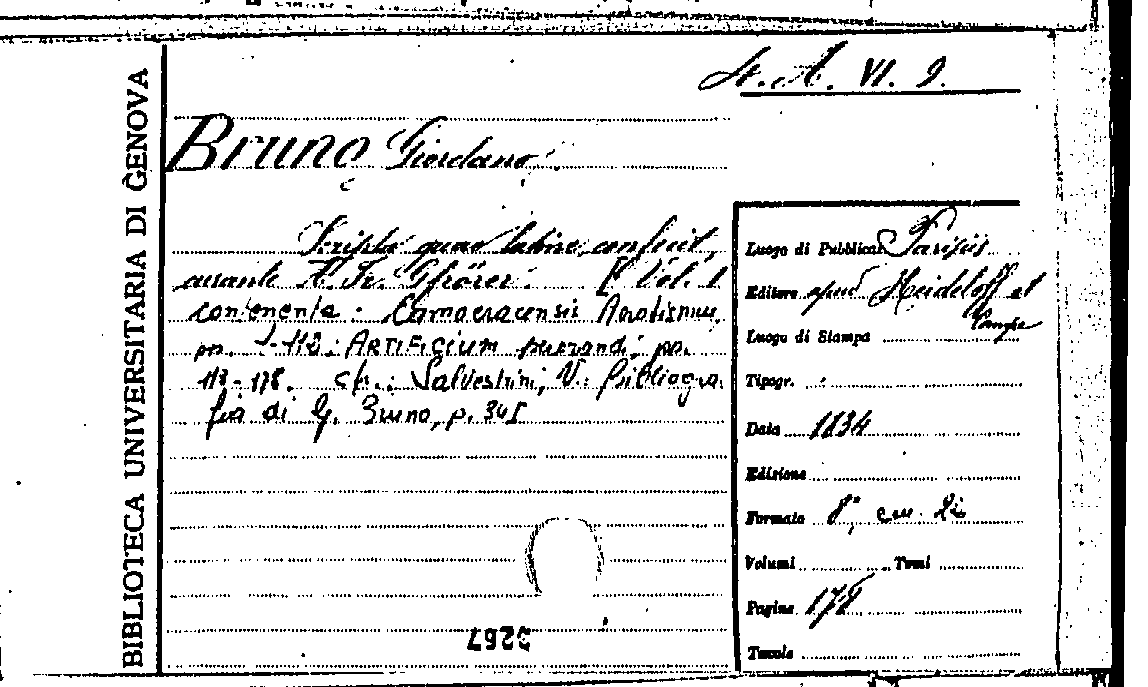 BIBLIOTECA UNIVERSITARIA DI GENOVA
A. VI. 9.
Bruno Giordano.
Scripta quae latine confecit,
curante A. Fr. Gfrörer. [Vol. I
contenente: Camoeracensis Acrotismus,
pp. 1-112; ARTIFICIUM perorandi, pp.
113-178. cfr.: Salvestrini, V.: Bibliogra
fia di G. Bruno, p. 34
Luogo di Pubblicaz. Parisiis
Editore apud Heideloff et
Campe
Luogo di Stampa
Tipogr.
Data 1834
Edizione
Formato 8°, cm.
Volumi Tomi
Pagine 178
Tavole
3267